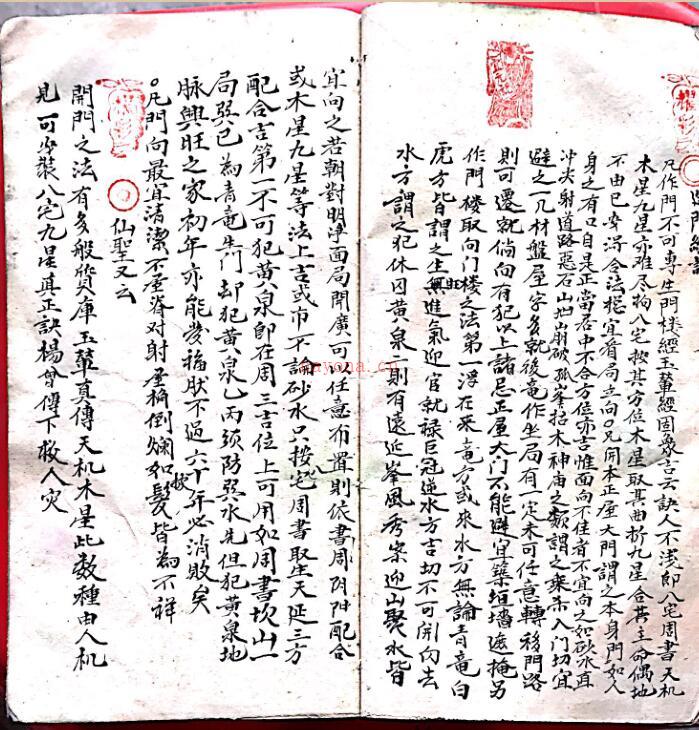 凡作門不可專生門樓經玉輦經固象吉云訣人不浅即八宅周書天机
木星九星亦难尽拘八宅按其方位木星取其曲折九星合其主命偶地
不由己安得合法揔宜看局立向凡开本正屋大門謂之本身門如人
身之有口自是正當居中不合方位亦吉惟面向不佳者不宜向之如砍水直
冲尖射道路惡石山地崩破孤峯括木神庙之類謂之乘杀入門切宜
避之一凡材盤屋字多就後竜作坐局有一定未可任意轉移門路
則可遷就倘向有犯以上諸忌正屋大门不能避宜築垣墻遮掩另
作門楼取向门楼之法第一浮在来竜方或来水方無論青竜白
虎方皆謂之生旺進氣迎官就禄巨冠逆水方吉切不可開向去
水方謂之犯休囚黄八泉一則有遠近峯風秀案迎山聚水皆
宜向之若朝對明净面局開廣可任意布置則依書周阴阳配合
或木星九星等法上吉或市不論砂水只按宅周書取生天延三方
配合吉第一不可犯黄八泉即在周三吉位上可用如周書坎山一
局巽已為青竜生门却犯黄八泉乙丙须防巽水先但犯黄泉地
脉興旺之家初年亦能发福肰不过六十年必消敗矣
凡門向最宜清潔不屋脊对射屋桷倒爛如髮皆為不祥
仙聖又云
開門之法有多般货庫玉輦直傳天机木星此数種由人机
見可少裝八宅九星真正訣楊曾傳下救人灾
mayona.cn